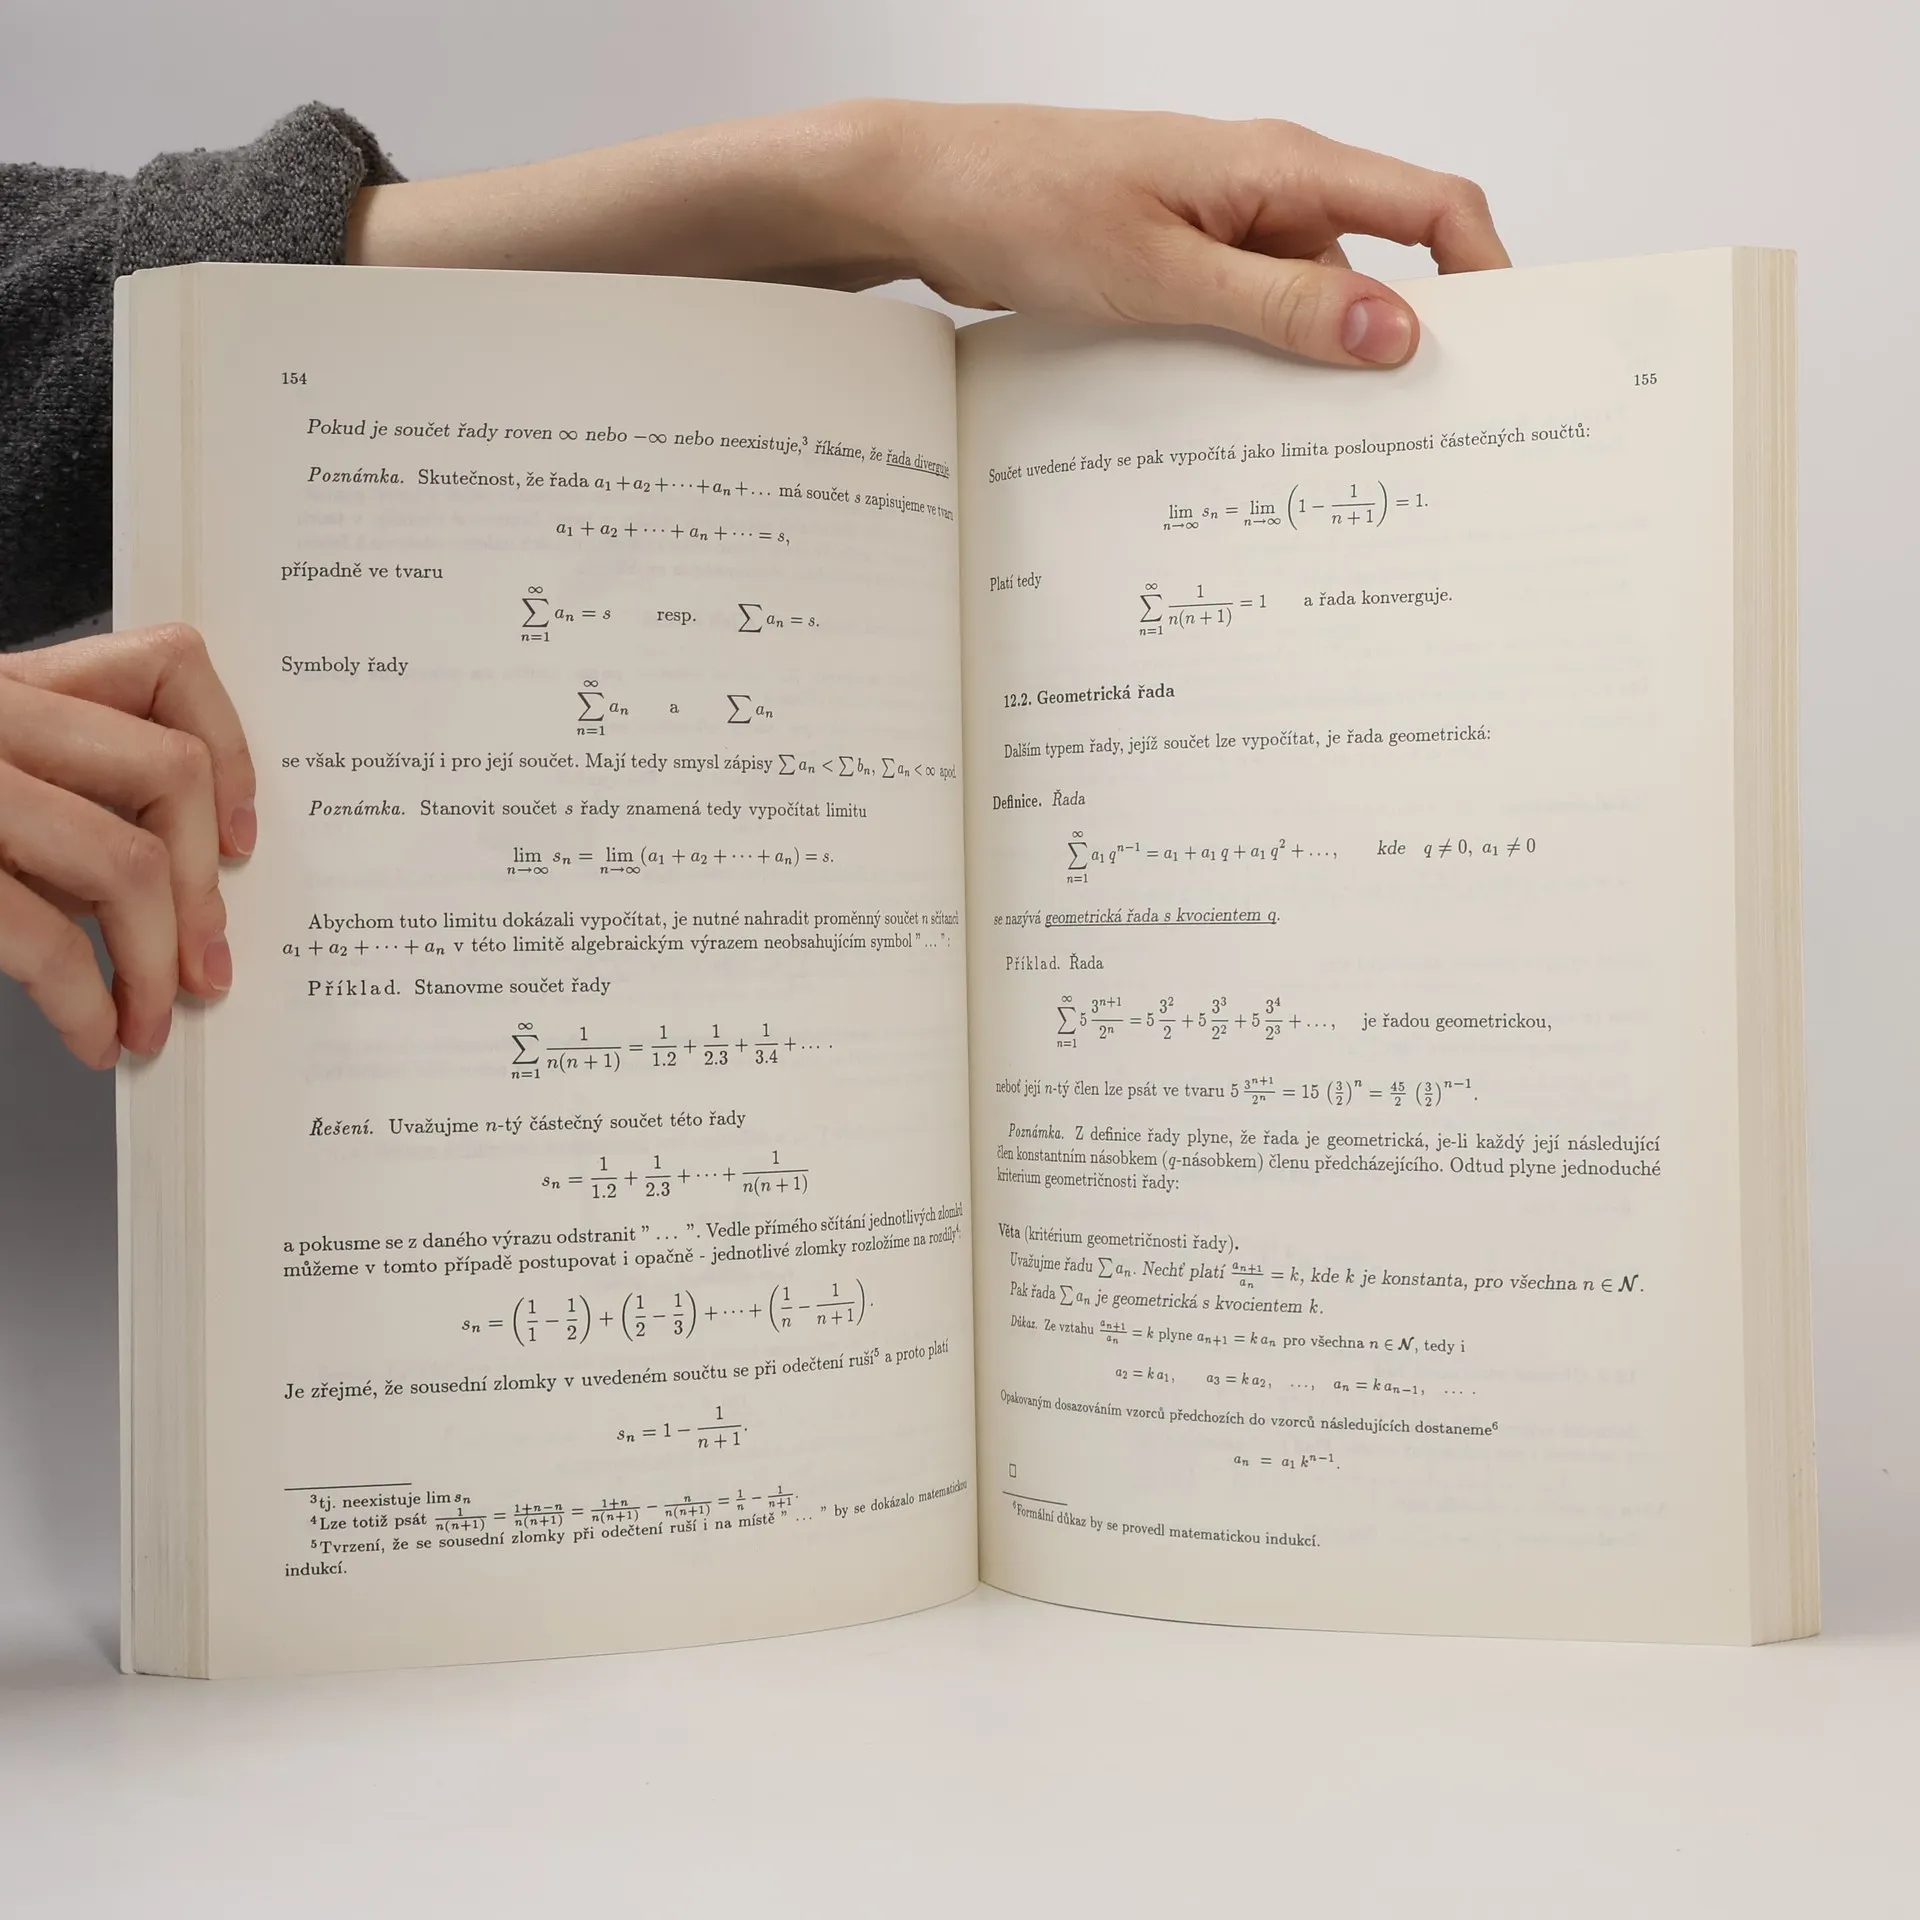 154
Pokud je součet řady roven ∞ nebo −∞ nebo neexistuje,³ říkáme, že řada diverguje
Poznámka. Skutečnost, že řada a₁ + a₂ + ⋯ + aₙ + … má součet s zapisujeme ve tvaru
a₁ + a₂ + ⋯ + aₙ + ⋯ = s,
případně ve tvaru
∑_{n=1}^{∞} aₙ = s resp. ∑ aₙ = s.
Symboly řady
∑_{n=1}^{∞} aₙ a ∑ aₙ
se však používají i pro její součet. Mají tedy smysl zápisy ∑ aₙ < ∑ bₙ, ∑ aₙ < ∞ apod
Poznámka. Stanovit součet s řady znamená tedy vypočítat limitu
lim_{n→∞} sₙ = lim_{n→∞} (a₁ + a₂ + ⋯ + aₙ) = s.
Abychom tuto limitu dokázali vypočítat, je nutné nahradit proměnný součet n sčítanců
a₁ + a₂ + ⋯ + aₙ v této limitě algebraickým výrazem neobsahujícím symbol ” … ”:
Příklad. Stanovme součet řady
∑_{n=1}^{∞} 1/(n(n + 1)) = 1/1.2 + 1/2.3 + 1/3.4 + … .
Řešení. Uvažujme n-tý částečný součet této řady
sₙ = 1/1.2 + 1/2.3 + ⋯ + 1/(n(n + 1))
a pokusme se z daného výrazu odstranit ” … ”. Vedle přímého sčítání jednotlivých zlomků
můžeme v tomto případě postupovat i opačně - jednotlivé zlomky rozložíme na rozdíly⁴:
sₙ = (1/1 − 1/2) + (1/2 − 1/3) + ⋯ + (1/n − 1/(n + 1)).
Je zřejmé, že sousední zlomky v uvedeném součtu se při odečtení ruší⁵ a proto platí
sₙ = 1 − 1/(n + 1).
³tj. neexistuje lim sₙ
⁴Lze totiž psát 1/(n(n+1)) = (1+n−n)/(n(n+1)) = (1+n)/(n(n+1)) − n/(n(n+1)) = 1/n − 1/(n+1).
⁵Tvrzení, že se sousední zlomky při odečtení ruší i na místě ” … ” by se dokázalo matematickou
indukcí.
155
Součet uvedené řady se pak vypočítá jako limita posloupnosti částečných součtů:
lim_{n→∞} sₙ = lim_{n→∞} (1 − 1/(n + 1)) = 1.
Platí tedy
∑_{n=1}^{∞} 1/(n(n + 1)) = 1 a řada konverguje.
12.2. Geometrická řada
Dalším typem řady, jejíž součet lze vypočítat, je řada geometrická:
Definice. Řada
∑_{n=1}^{∞} a₁ qⁿ⁻¹ = a₁ + a₁ q + a₁ q² + …, kde q ≠ 0, a₁ ≠ 0
se nazývá geometrická řada s kvocientem q.
Příklad. Řada
∑_{n=1}^{∞} 5 3ⁿ⁺¹/2ⁿ = 5 3²/2 + 5 3³/2² + 5 3⁴/2³ + …, je řadou geometrickou,
neboť její n-tý člen lze psát ve tvaru 5 3ⁿ⁺¹/2ⁿ = 15 (3/2)ⁿ = 45/2 (3/2)ⁿ⁻¹.
Poznámka. Z definice řady plyne, že řada je geometrická, je-li každý její následující
člen konstantním násobkem (q-násobkem) členu předcházejícího. Odtud plyne jednoduché
kriterium geometričnosti řady:
Věta (kritérium geometričnosti řady).
Uvažujme řadu ∑ aₙ. Nechť platí aₙ₊₁/aₙ = k, kde k je konstanta, pro všechna n ∈ N.
Pak řada ∑ aₙ je geometrická s kvocientem k.
Důkaz. Ze vztahu aₙ₊₁/aₙ = k plyne aₙ₊₁ = k aₙ pro všechna n ∈ N, tedy i
a₂ = k a₁, a₃ = k a₂, …, aₙ = k aₙ₋₁, … .
Opakovaným dosazováním vzorců předchozích do vzorců následujících dostaneme⁶
aₙ = a₁ kⁿ⁻¹.
▯
⁶Formální důkaz by se provedl matematickou indukcí.